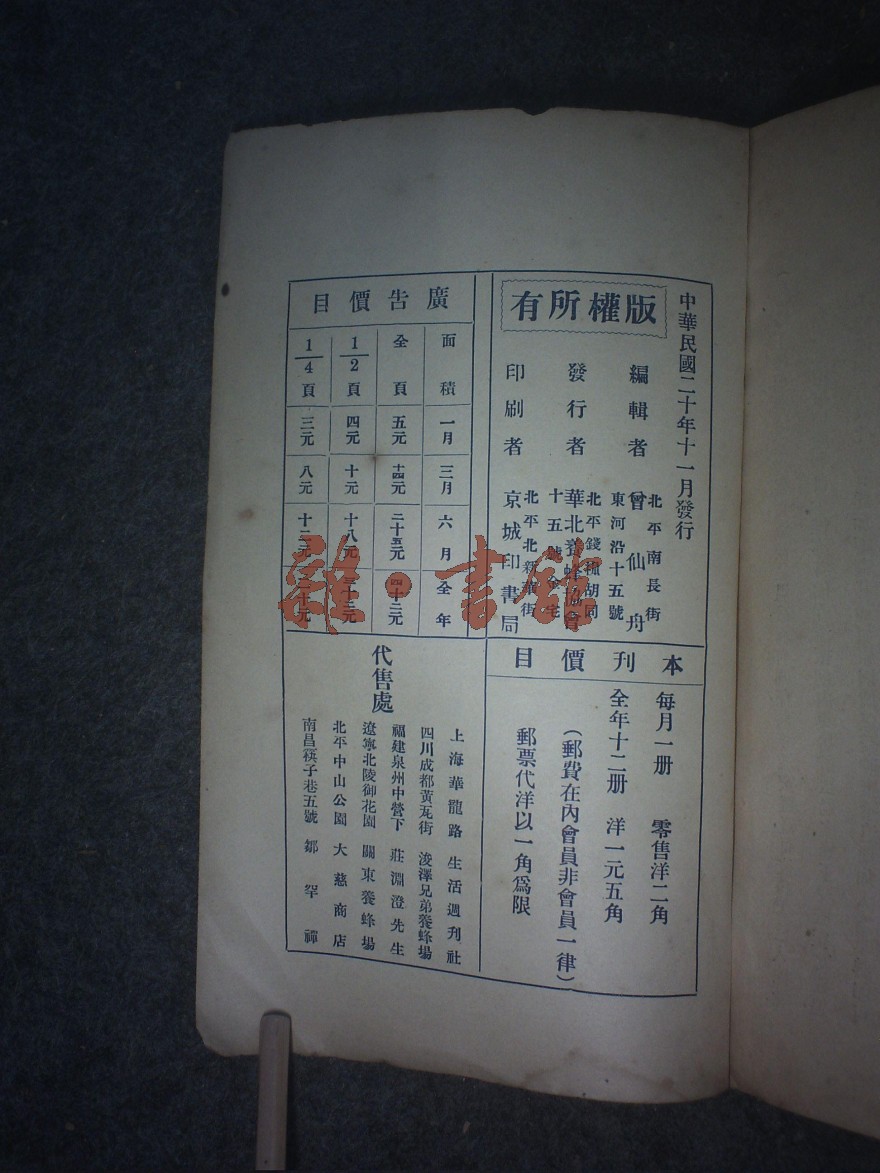 中華民國二十年十一月發行
版權所有
編輯者
北平南長街
東河沿十五號
曾仙舟
發行者
北平錢糧胡同
十五號宅
華北養蜂協會
印刷者
北平北新華街
京城印書局
廣告價目
面積 一月 三月 六月 全年
全頁 五元 十四元 二十五元 四十二元
1/2頁 四元 十元 十八元 三十二元
1/4頁 三元 八元 十二元 二十元
本刊價目
每月一册 零售洋二角
全年十二册 洋一元五角
(郵費在內會員非會員一律)
郵票代洋以一角爲限
代售處
上海華龍路 生活週刊社
四川成都黃瓦街 浚澤兄弟養蜂場
福建泉州中營下 莊淵澄先生
遼寧北陵御花園 關東養蜂場
北平中山公園 大慈商店
南昌筷子巷五號 鄒罕禪
雜·書館